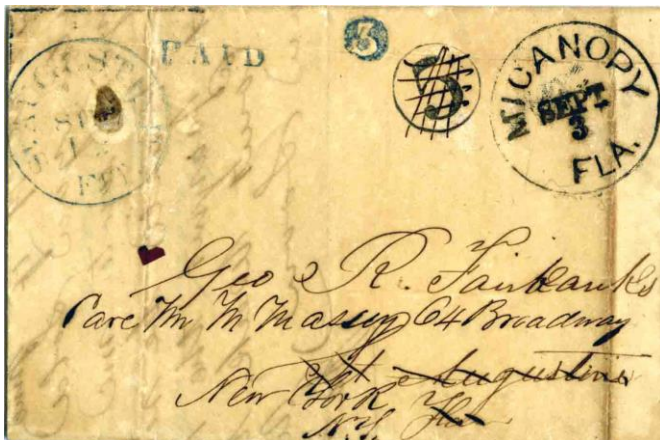 ST. AUGUSTINE
PAID
3
5
MICANOPY
SEPT
3
FLA.
Geo R. Fairbanks
Care M M Massey 64 Broadway
St Augustine
New York
NY Flo